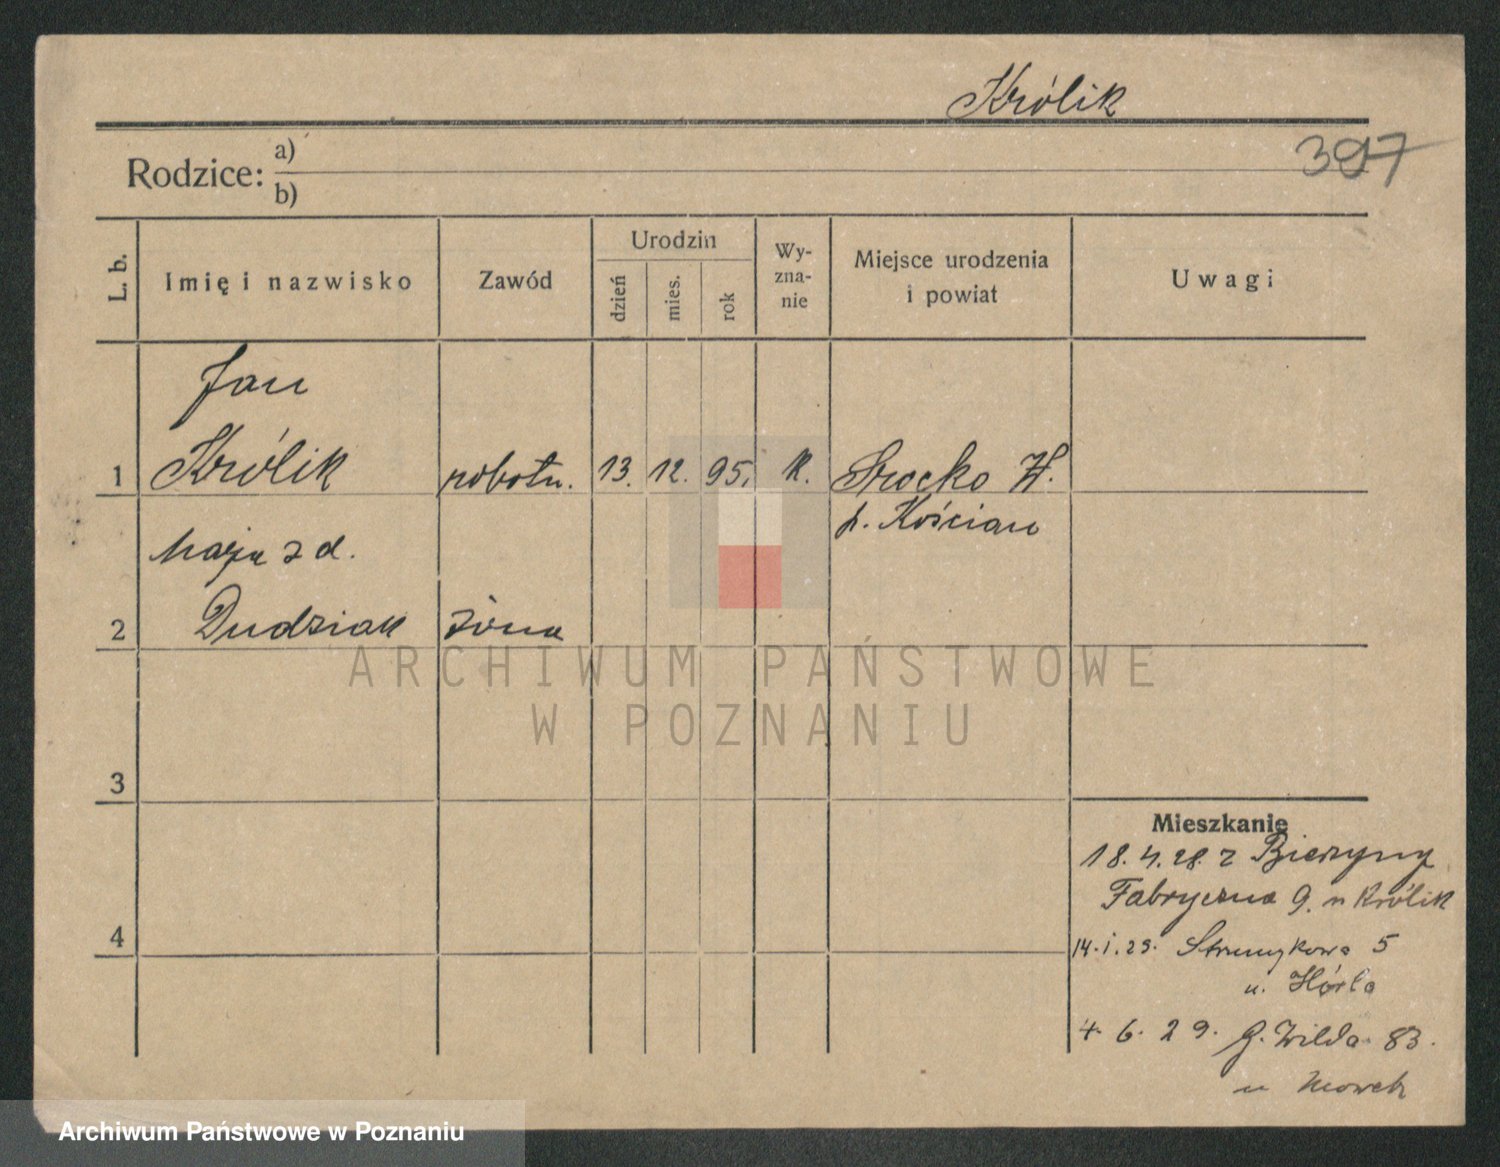 Królik
397
Rodzice: a)
b)
L. b.
Imię i nazwisko
Zawód
Urodzin
dzień
mies.
rok
Wy-
zna-
nie
Miejsce urodzenia
i powiat
Uwagi
Jan
1 Królik robotn. 13. 12. 95. K. Srocko W.
p. Kościan
z d.
2 Dudziak żona
3
4
Mieszkanie
18.4.28. z Bieżyny
Fabryczna 9. u Królik
14.1.29. Strumykowa 5
u.
4. 6. 29. G. Wilda 83.
u
ARCHIWUM PAŃSTWOWE
W POZNANIU
Archiwum Państwowe w Poznaniu